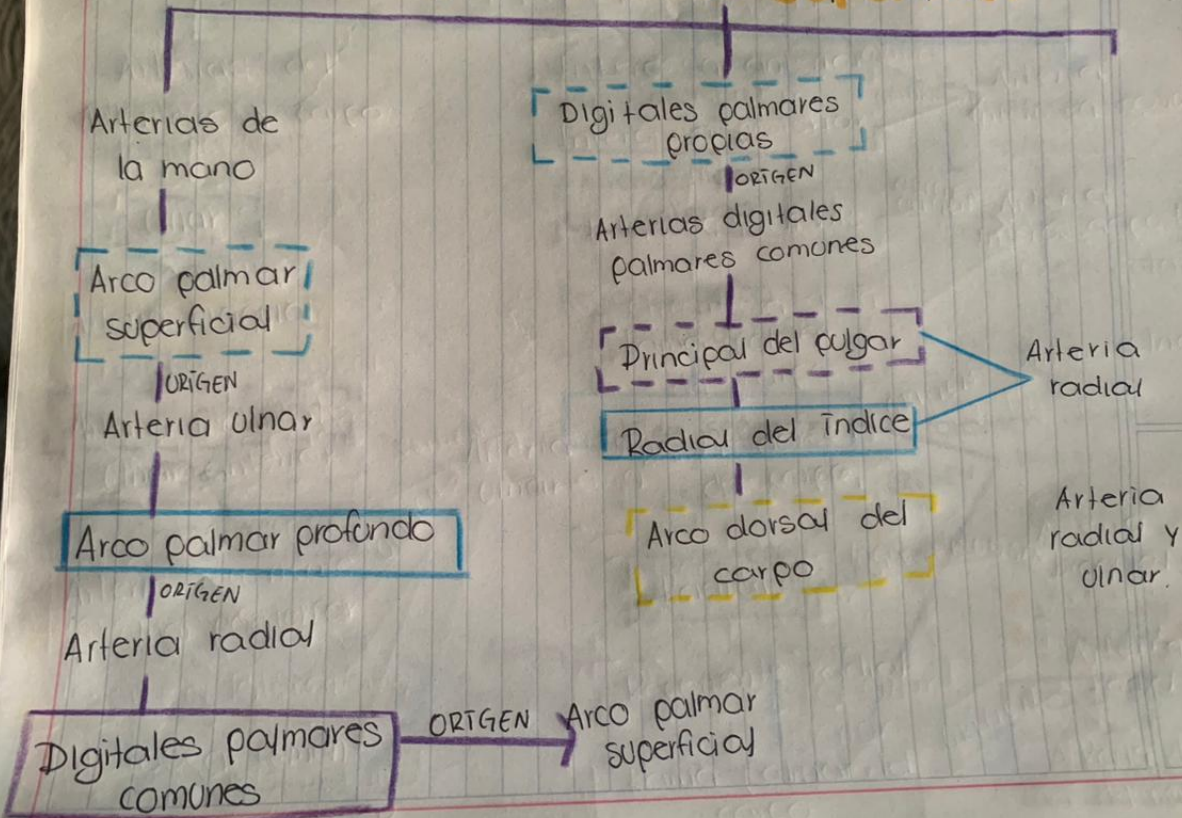 Arterias de
la mano
Arco palmar
superficial
ORIGEN
Arteria ulnar
Arco palmar profundo
ORIGEN
Arteria radial
Digitales palmares
comunes
ORIGEN
Arco palmar
superficial
Digitales palmares
propias
ORIGEN
Arterias digitales
palmares comunes
Principal del pulgar
Radial del índice
Arteria
radial
Arco dorsal del
carpo
Arteria
radial y
ulnar.